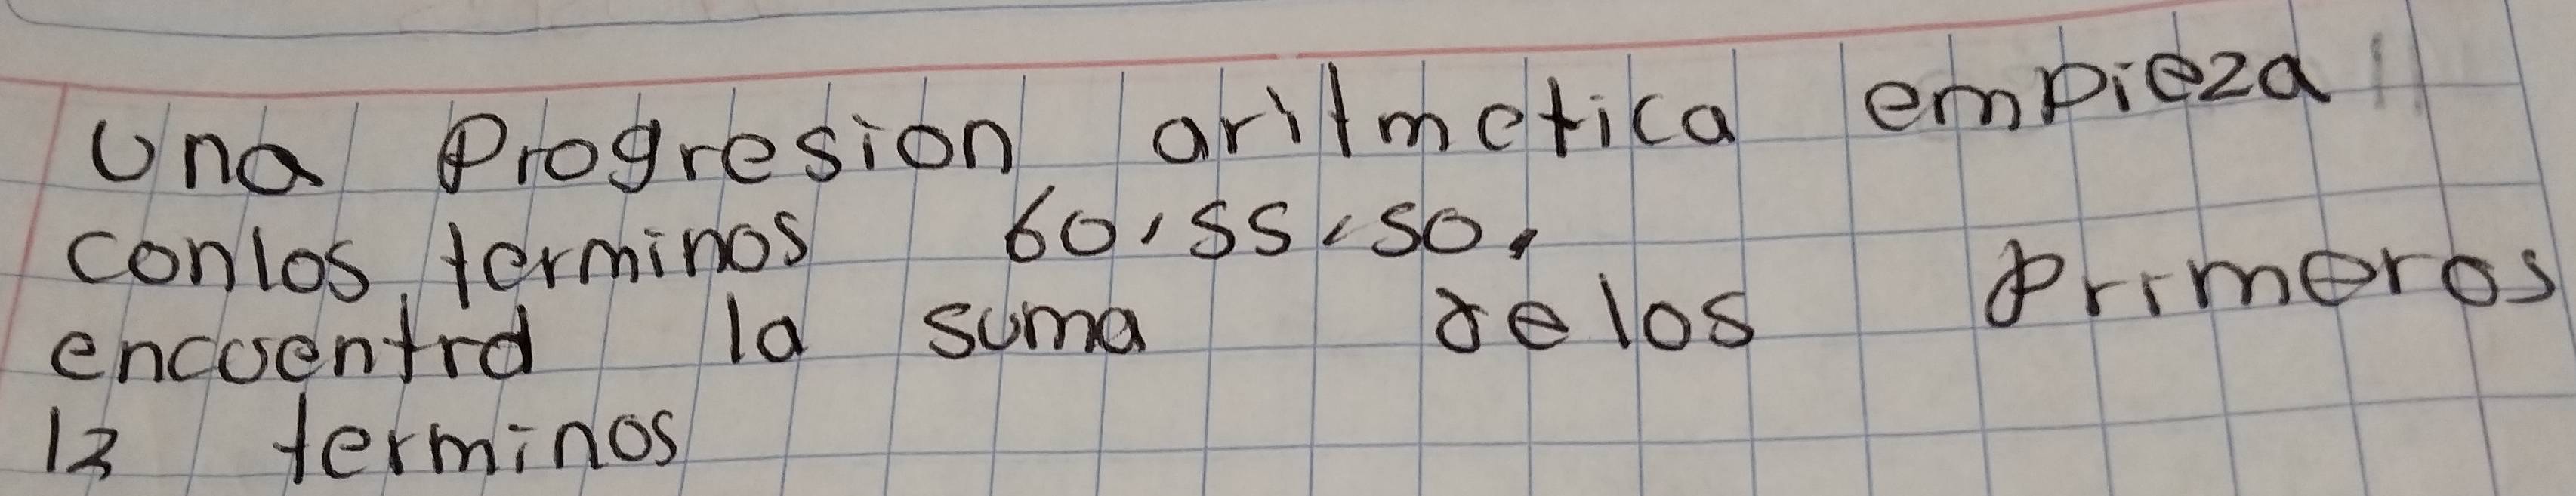 Una Progresion aritmetica empieza
conlos terminos 60, 55, 50.
encuentra la suma delos primeros
12 terminos